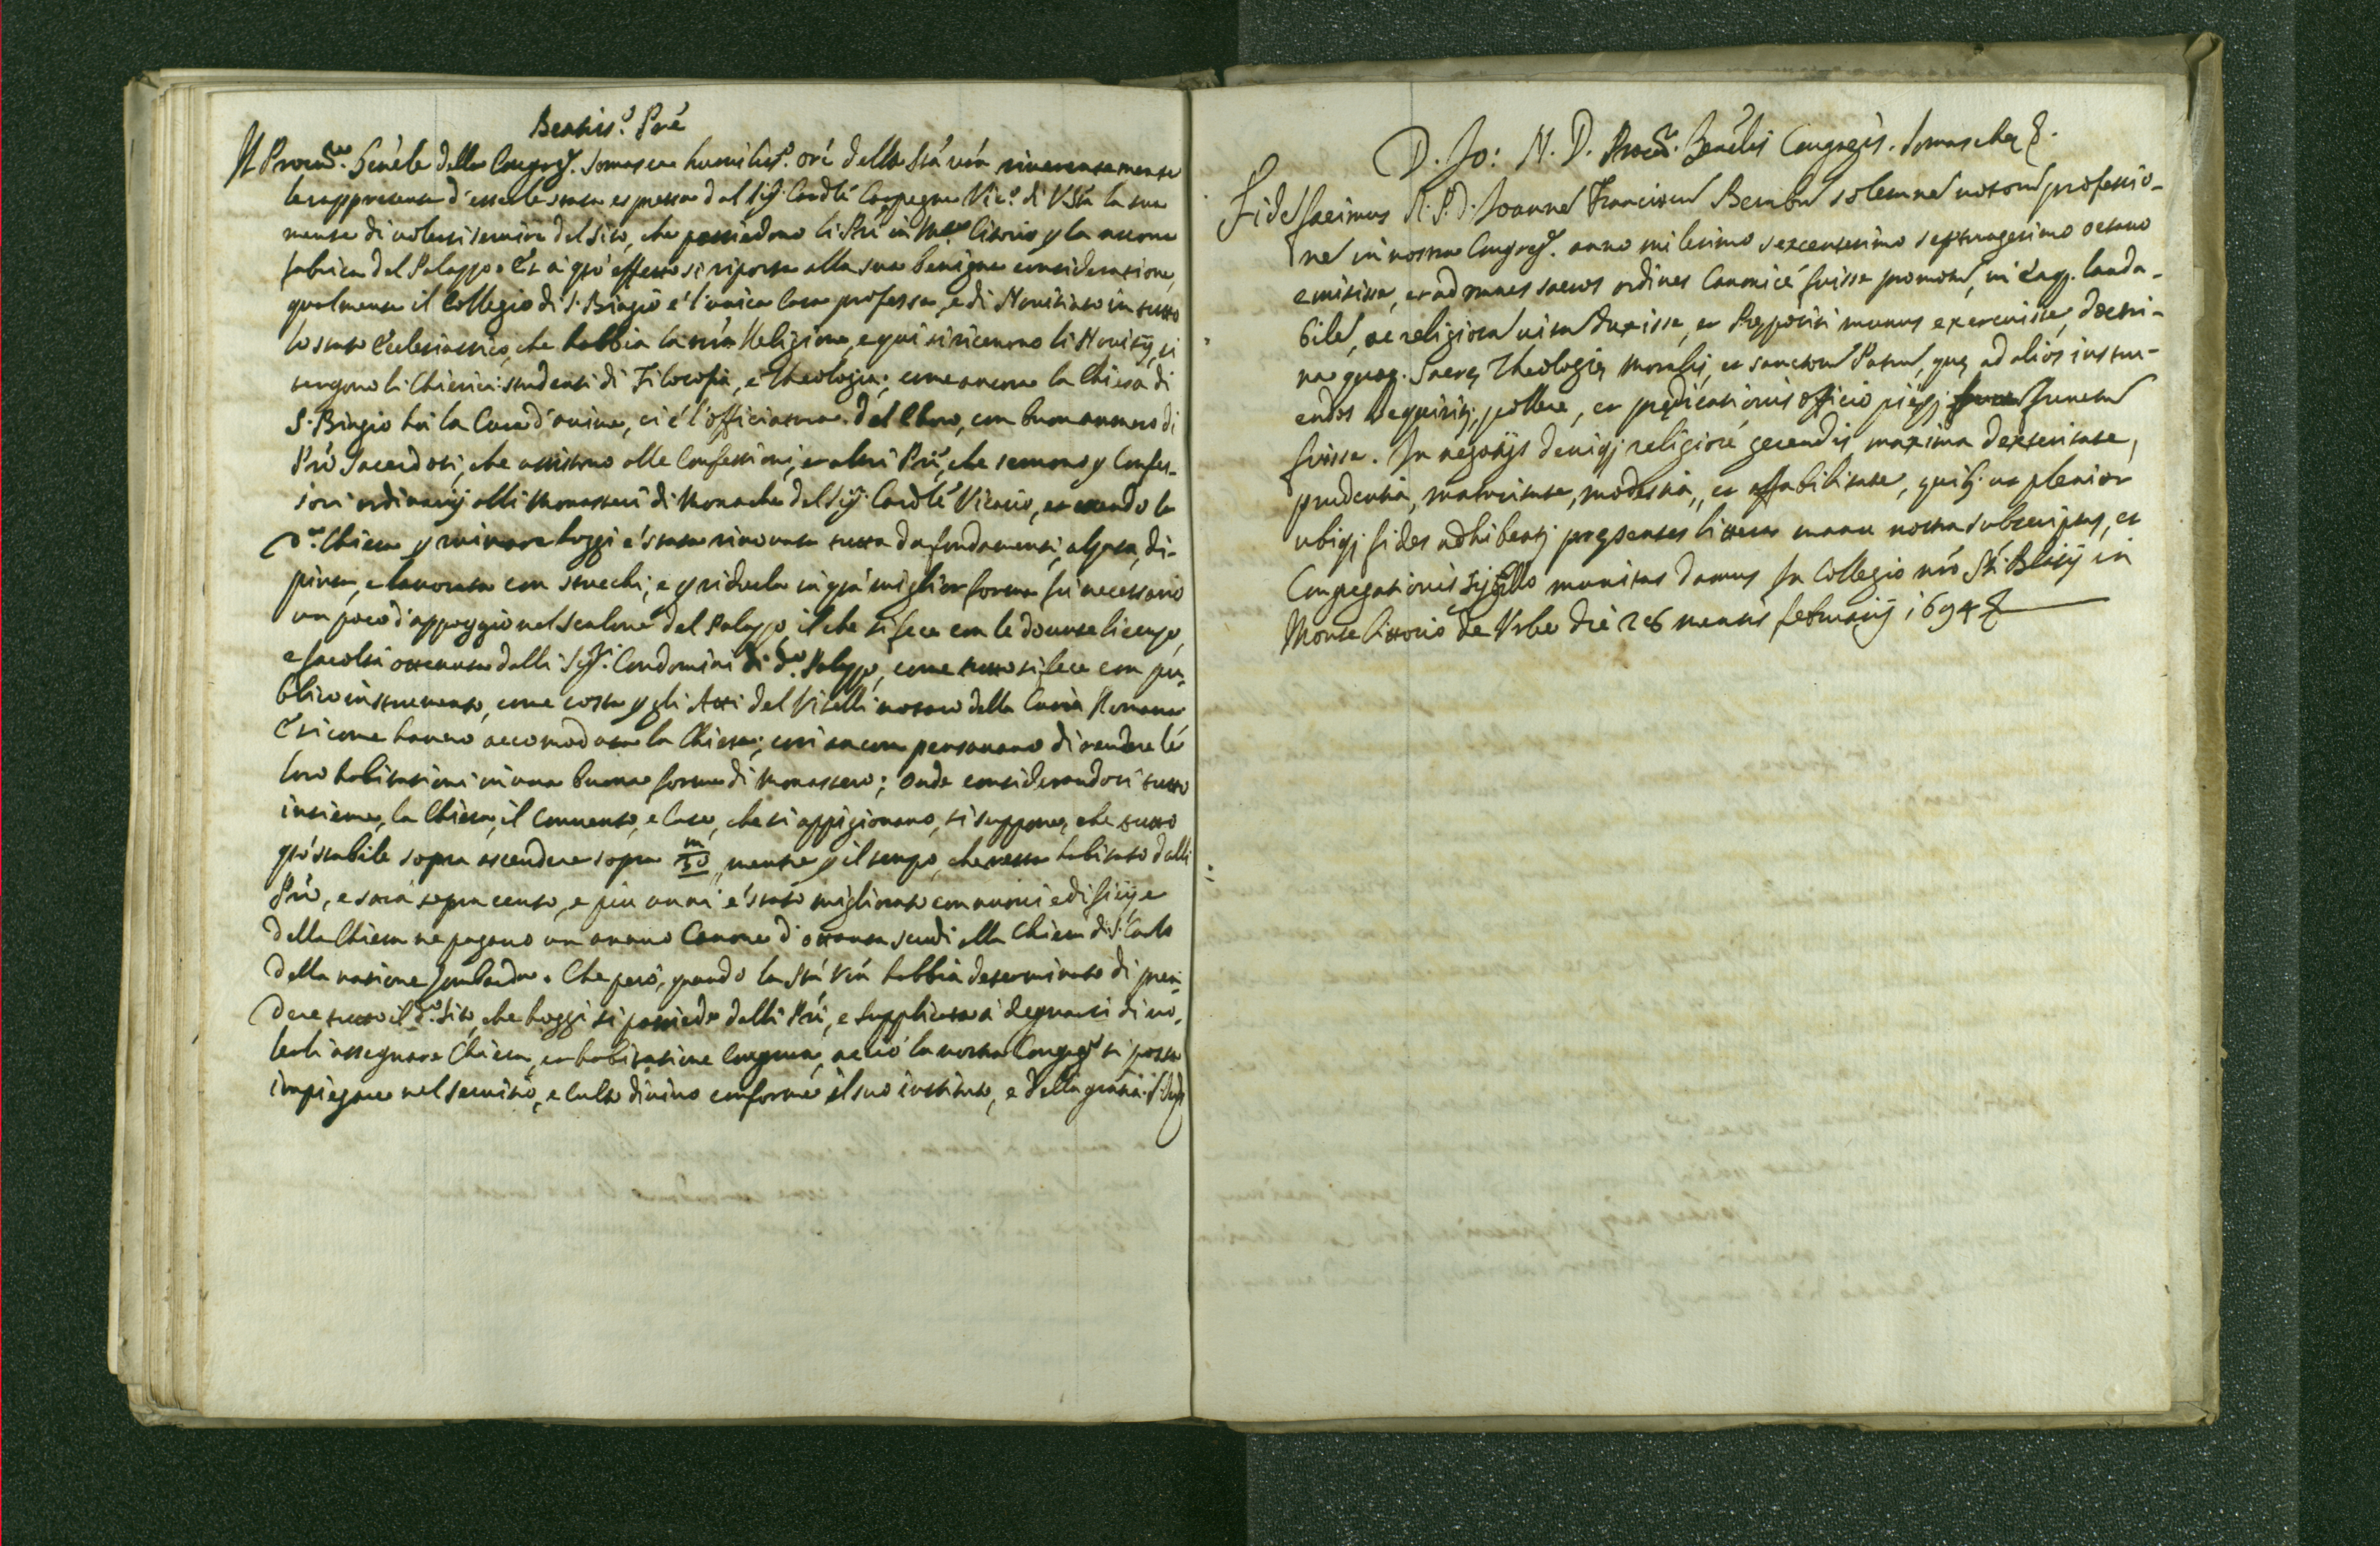 Beatis.o Pr̃e
Il Procur.re Gen̄ele della Congreg.e Somasca humilis.o ore della Stà Vr̃a riverentemente
le rappresenta d'esserle stata espressa dal Sig.r Cardle Carpegna Vic.o di V. Stà la sua
mente di volersi servire del sito, che possiedono li Prī in M.te Citorio p la nuova
fabrica del Palazzo. Et a qsto effetto si riporta alla sua benigna consideratione,
qualmente il Collegio di S. Biagio è l'unica Casa professa, e di Novitiato in tutto
lo stato Ecclesiastico, che habbia la nr̃a Religione, e qui si ricevono li Novitij, si
tengono li Chierici studenti di Filosofia, e Theologia; come ancora la Chiesa di
S. Biagio hà la Cura d'anime, ci è l'officiatura del Choro, con buon numero di
Prī Sacerdoti, che assistono alle Confessioni, et altri Prī, che servono p Confes-
sori ordinarij alli Monasteri di Monache del Sig.r Cardle Vicario, et essendo la
d.a Chiesa p minare hoggi è stata rinovata tutta da fondamenti, alzata, di-
pinta, e lavorata con stucchi; e p ridurla in qsta miglior forma fù necessario
un poco d'appoggio nel scalone del Palazzo, il che si fece con le dovute licenze,
e facoltà ottenute dalli Sig.ri Condomini di d.o Palazzo, come tutto si fece con pu-
blico instrumento, come costa p gli Atti del Vitelli notaro della Curia Romana
E sicome hanno accomodata la Chiesa; così ancora pensavano di rendere le
loro habitationi in una buona forma di Monastero; Onde considerandosi tutto
insieme, la Chiesa, il Convento, e Case, che si appigionano, si suppone, che tutto
qsto stabile sopra ascendere sopra m/50, mentre p il tempo, che resta habitato dalli
Prī, e sarà sopra cento, e più anni è stato migliorato con nuovi edificij, e
della Chiesa ne pagano un annuo Canone d'ottanta scudi alla Chiesa di S. Carlo
della natione Lombarda. Che però, quando la Stà Vr̃a habbia determinato di pren-
dere tutto il d.o sito, che hoggi si possiede dalli Prī, e supplicata à degnarsi di vo-
lerli assegnare Chiesa, et habitatione congrua, acciò la nostra Congreg.e si possa
impiegare nel servitio, e culto divino conforme il suo instituto, e della gratia
D. Jo: N. D. Procur. Gen̄elis Congregis. Somaschę &.
Fidem facimus R. P. D. Joannem Franciscum Bembum solemnem votorum professio-
nem in nostra Congreg.e anno milesimo sexcentesimo septuagesimo octavo
emisisse, et ad omnes sacros ordines Canonicè fuisse promotum, in eaq. lauda-
bilem, ac religiosam vitam duxisse, et Prępositi munus exercuisse, doctri-
na quoq. Sacrę Theologię Moralis, et sanctorum Patrum, quę ad alios instru-
endos requiritur, pollere, et prędicationis officio pięq; functum
fuisse. In negotijs deniq; religiosè gerendis maxima dexteritate,
prudentia, maturitate, modestia, et affabilitate, quib; ut plenior
ubiq; fides adhibeatur pręsentes litteras manu nostra subscriptas, et
Congregationis sigillo munitas damus In Collegio nr̃o Sti Blasij in
Monte Citorio de Urbe die 26 mensis februarij 1694 &